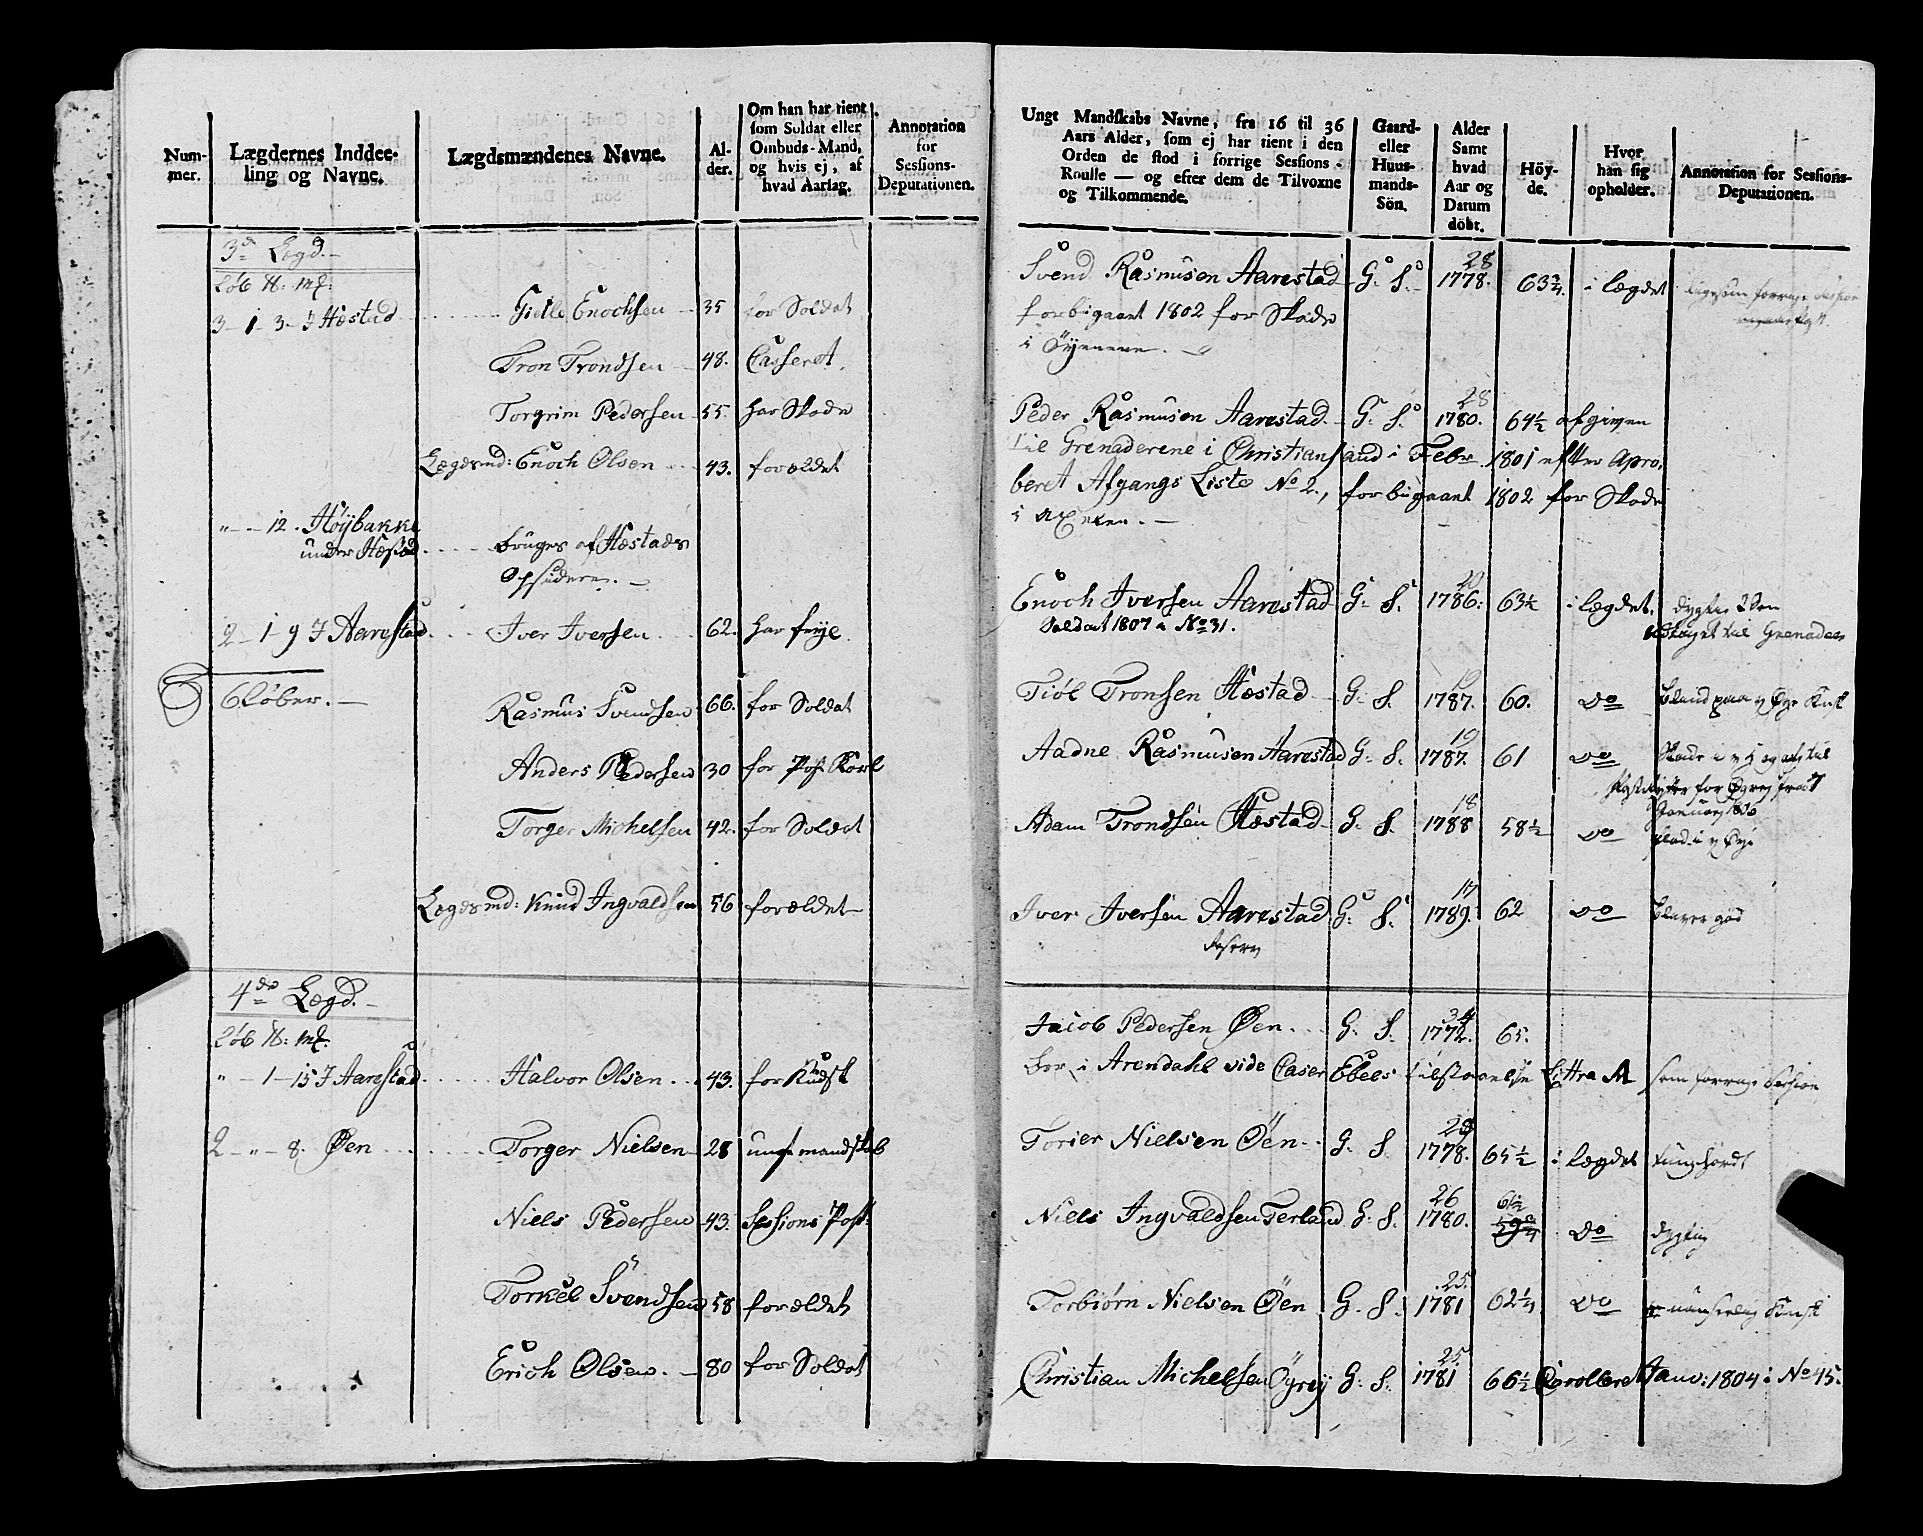 Num-
mer.
Lægdernes Inddee-
ling og Navne.
Lægdsmændenes Navne.
Al-
der.
Om han har tient
som Soldat eller
Ombuds-Mand,
og hvis ej, af
hvad Aarsag.
Annotation
for
Sessions-
Deputationen.
3d Lægd.
3 - 1 - 3 - J Hæstad
Gielle Enochsen 35 for Soldat
Tron Trondsen 48. Casseret.
Torgrim Pedersen 55. har Skade
Lægdsmd: Enoch Olsen 43. forældet
" - - 12. Höÿbakke
under Hæstad bruges af Hæstads
Opsiddere.
2 - 1 - 9 J Aarestad Iver Iversen 62. har frije
6 Løber.
Rasmus Svendsen 66. for Soldat
Anders Pedersen 30 for Post Karl
Torger Michelsen 42. for Soldat
Lægdsmd: Knud Ingvaldsen 56 forældet
4de Lægd.
" - 1 - 15 J Aarestad Halvor Olsen 43. for Kudsk
2 - " - 8. Øen Torger Nielsen 28 ungt mandskab
Niels Pedersen 43. Sessions Post.
Torkel Svendsen 58 forældet
Erich Olsen. 80 for Soldat
Ungt Mandskabs Navne, fra 16 til 36
Aars Alder, som ej har tient i den
Orden de stod i forrige Sessions-
Roulle — og efter dem de Tilvoxne
og Tilkommende.
Gaard-
eller
Huus-
mands-
Sön.
Alder
Samt
hvad
Aar og
Datum
döbt.
Höy-
de.
Hvor
han sig
opholder.
Annotation for Sessions-
Deputationen.
28
Svend Rasmusen Aarestad G: S: 1778. 63 3/4. i lægdet
forbigaaet 1802 for Skade
i Øyenene.
28
Peder Rasmusen Aarestad G: S: 1780. 64 1/2 afgiven
til Grenaderene i Christiansand i Febr. 1801 efter Apro-
beret Afgangs Liste No 2, forbigaaet 1802 for Skade
20
Enoch Iversen Aarestad G: S. 1786. 63 1/2 i lægdet. dygtig
Soldat 1807 a No 31. til Grenader
19
Tiøl Tronsen Hæstad G: S. 1787. 60. do
19
Aadne Rasmusen Aarestad G: S. 1787. 61 do
18
Adam Trondsen Hæstad G. S. 1788 58 1/2 do
17
Iver Iversen Aarestad G: S. 1789. 62 do
Reserv
34
Jacob Pedersen Øen. G. S. 1772. 65.
boer i Arendahl vide Caser Ebels Littra A som forrige Session
Torier Nielsen Öen G. S. 1778. 65 1/2 i lægdet tunghördt
26 61 1/2
Niels Ingvaldsen Terland G: S. 1780. 59 3/4 do dygtig
25.
Torbiørn Nielsen Øen G. S. 1781 62 1/4 do
25
Christian Michelsen Öyrej G. S. 1781 66 1/2 Janv: 1804 i No 45.